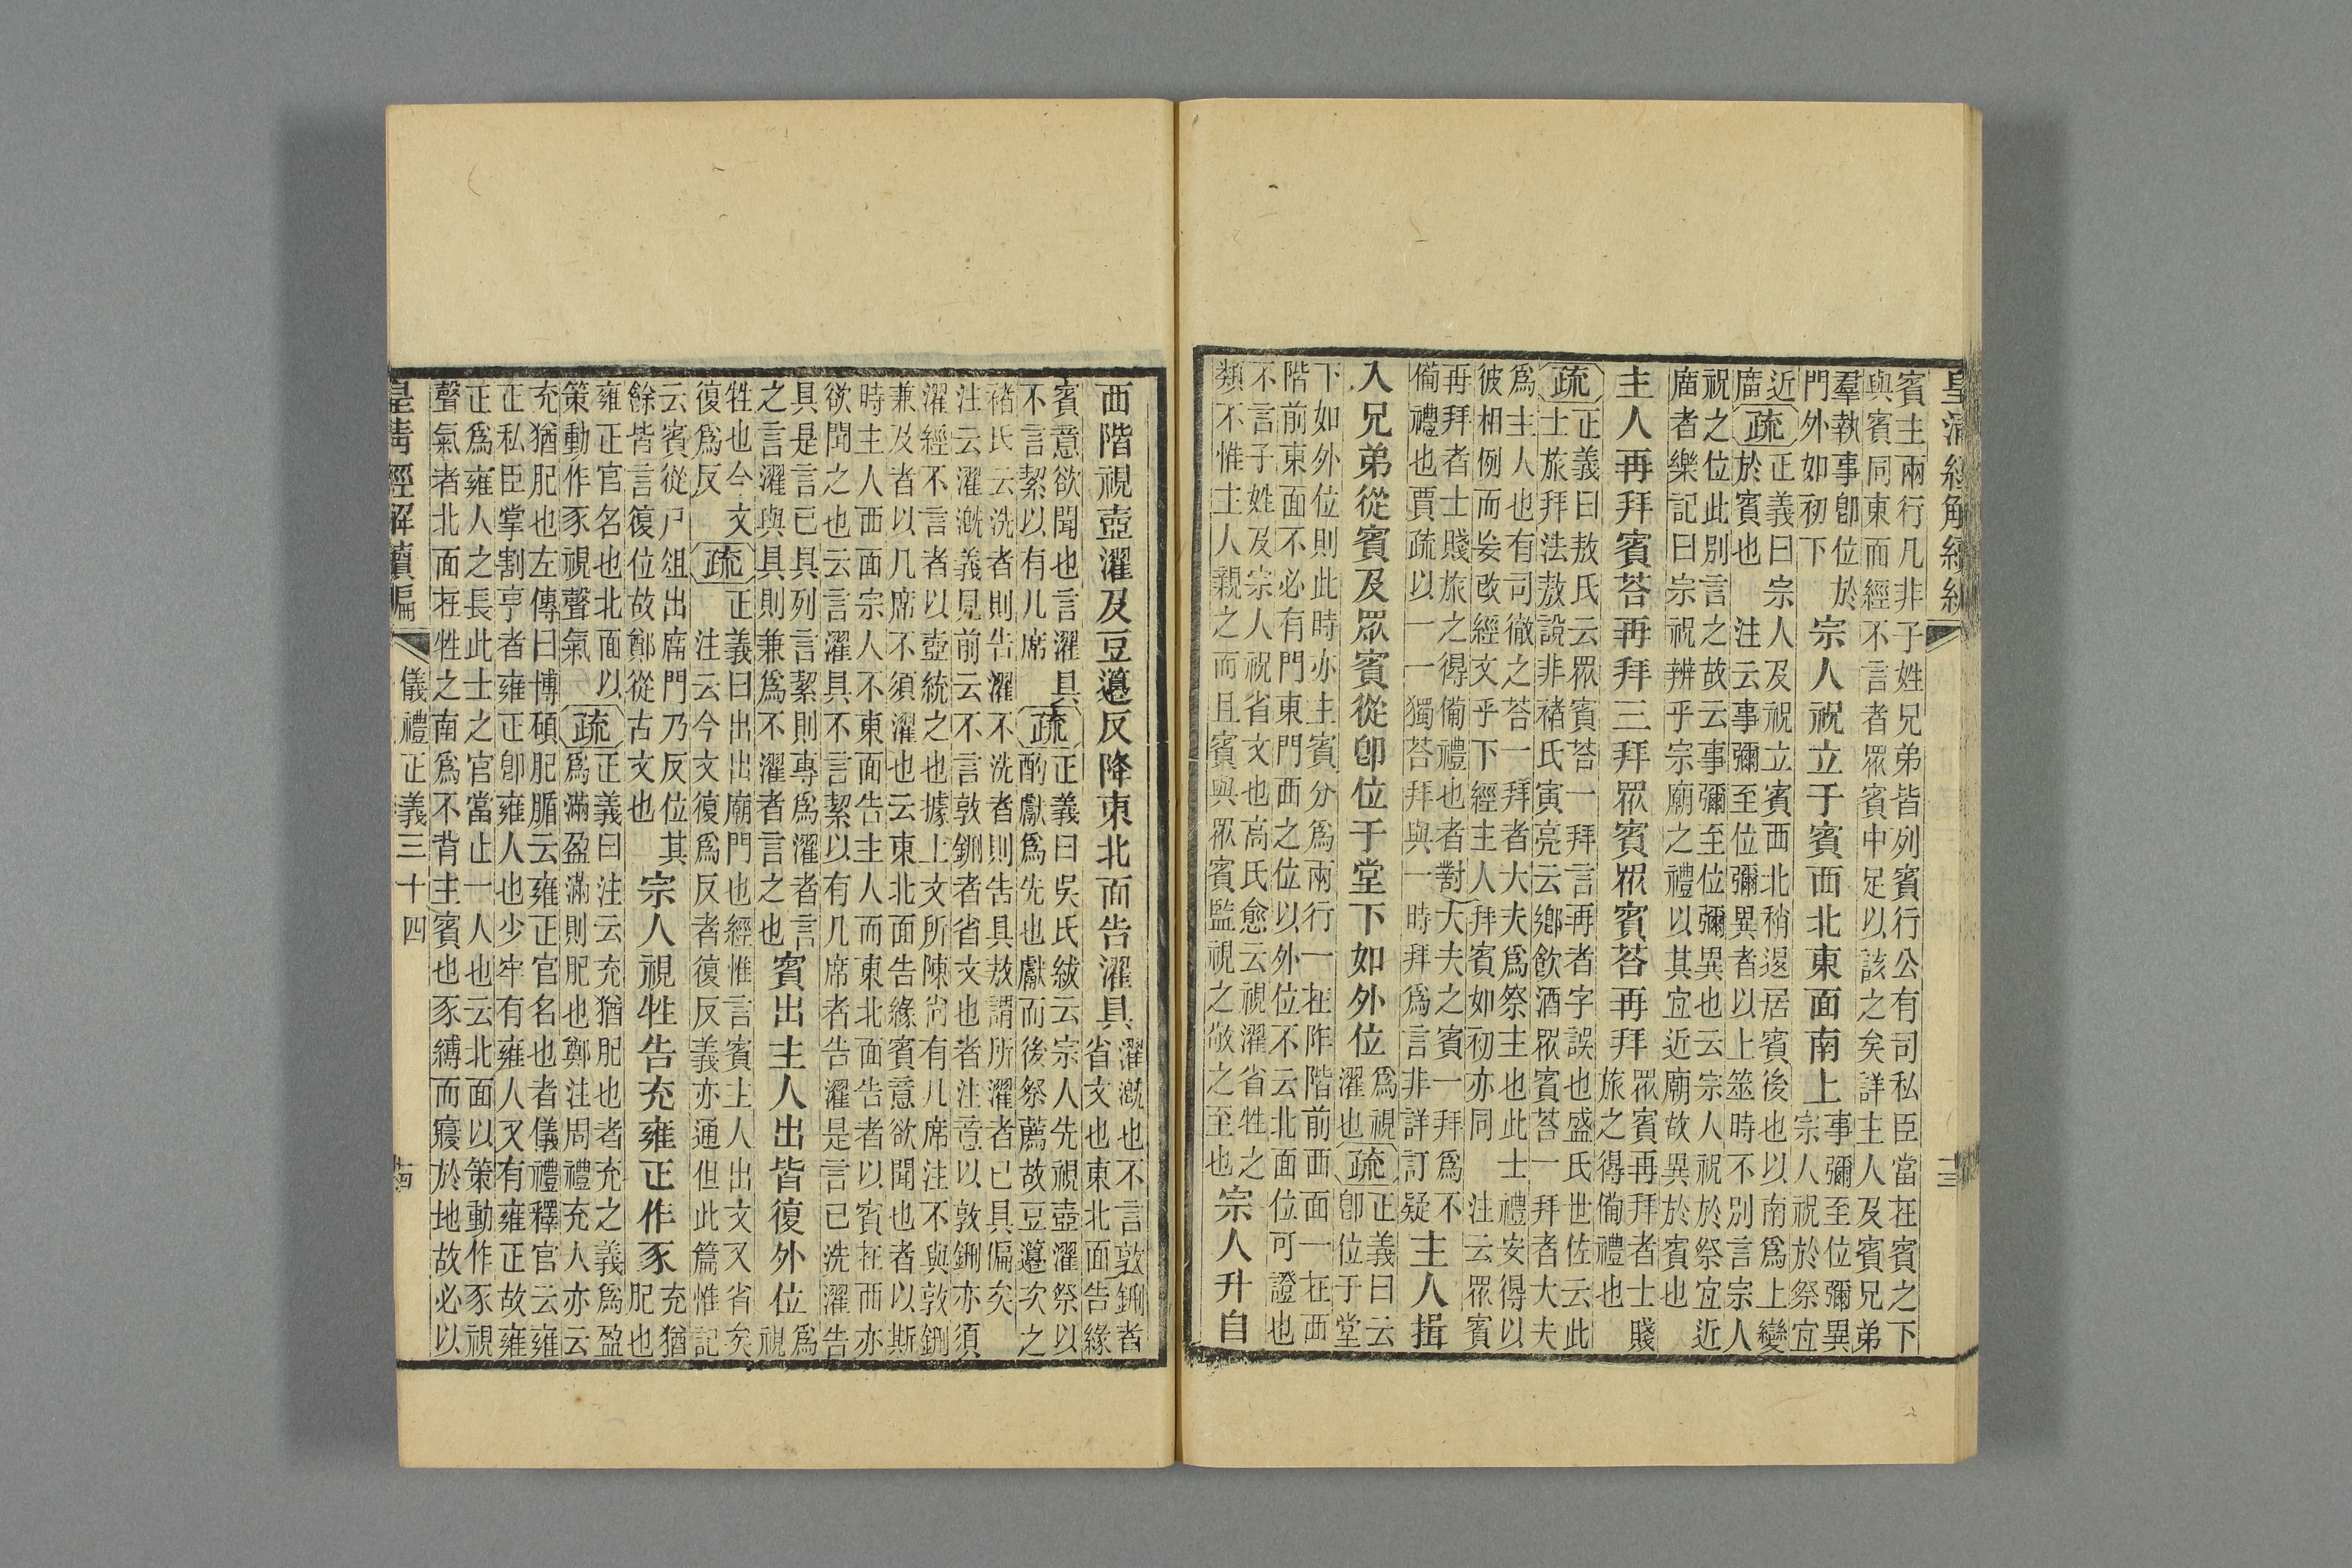 皇清經解續編
十三
賓主兩行凡非子姓兄弟皆列賓行公有司私臣當在賓之下
與賓同東面經不言者眾賓中足以該之矣詳主人及賓兄弟
羣執事卽位於
門外如初下
宗人祝立于賓西北東面南上
事彌至位彌異
宗人祝於祭宜
近
廟
疏
正義曰宗人及祝立賓西北稍退居賓後也以南爲上變
於賓也　注云事彌至位彌異者以上筮時不別言宗人
祝之位此別言之故云事彌至位彌異也云宗人祝於祭宜近
廟者樂記曰宗祝辨乎宗廟之禮以其宜近廟故異於賓也
主人再拜賓荅再拜三拜眾賓眾賓荅再拜
眾賓再拜者士賤
旅之得備禮也
疏
正義曰敖氏云眾賓荅一拜言再者字誤也盛氏世佐云此
士旅拜法敖說非褚氏寅亮云鄉飲酒眾賓荅一拜者大夫
爲主人也有司徹之荅一拜者大夫爲祭主也此士禮安得以
彼相例而妄改經文乎下經主人拜賓如初亦同　注云眾賓
再拜者士賤旅之得備禮也者對大夫之賓一拜爲不
備禮也賈疏以一一獨荅拜與一時拜爲言非詳訂疑
主人揖
入兄弟從賓及眾賓從卽位于堂下如外位
爲視
濯也
疏
正義曰云
卽位于堂
下如外位則此時亦主賓分爲兩行一在阼階前西面一在西
階前東面不必有門東門西之位以外位不云北面位可證也
不言子姓及宗人祝省文也高氏愈云視濯省牲之
類不惟主人親之而且賓與眾賓監視之敬之至也
宗人升自
西階視壺濯及豆籩反降東北面告濯具
濯漑也不言敦鉶者
省文也東北面告緣
賓意欲聞也言濯具
不言絜以有几席
疏
正義曰吳氏紱云宗人先視壺濯祭以
酌獻爲先也獻而後祭薦故豆籩次之
褚氏云洗者則告濯不洗者則告具敖謂所濯者已具偏矣
注云濯漑義見前云不言敦鉶者省文也者注意以敦鉶亦須
濯經不言者以壺統之也據上文所陳尚有几席注不與敦鉶
兼及者以几席不須濯也云東北面告緣賓意欲聞也者以斯
時主人西面宗人不東面告主人而東北面告者以賓在西亦
欲聞之也云言濯具不言絜以有几席者告濯是言已洗濯告
具是言已具列言絜則專爲濯者言
之言濯與具則兼爲不濯者言之也
賓出主人出皆復外位
爲
視
牲也今文
復爲反
疏
正義曰出出廟門也經惟言賓主人出文又省矣
注云今文復爲反者復反義亦通但此篇惟記
云賓從尸俎出席門乃反位其
餘皆言復位故鄭從古文也
宗人視牲告充雍正作豕
充猶
肥也
雍正官名也北面以
策動作豕視聲氣
疏
正義曰注云充猶肥也者充之義爲盈
爲滿盈滿則肥也鄭注周禮充人亦云
充猶肥也左傳曰博碩肥腯云雍正官名也者儀禮釋官云雍
正私臣掌割亨者雍正卽雍人也少牢有雍人又有雍正故雍
正爲雍人之長此士之官當止一人也云北面以策動作豕視
聲氣者北面在牲之南爲不背主賓也豕縛而寢於地故必以
皇清經解續編
儀禮正義三十四
十四